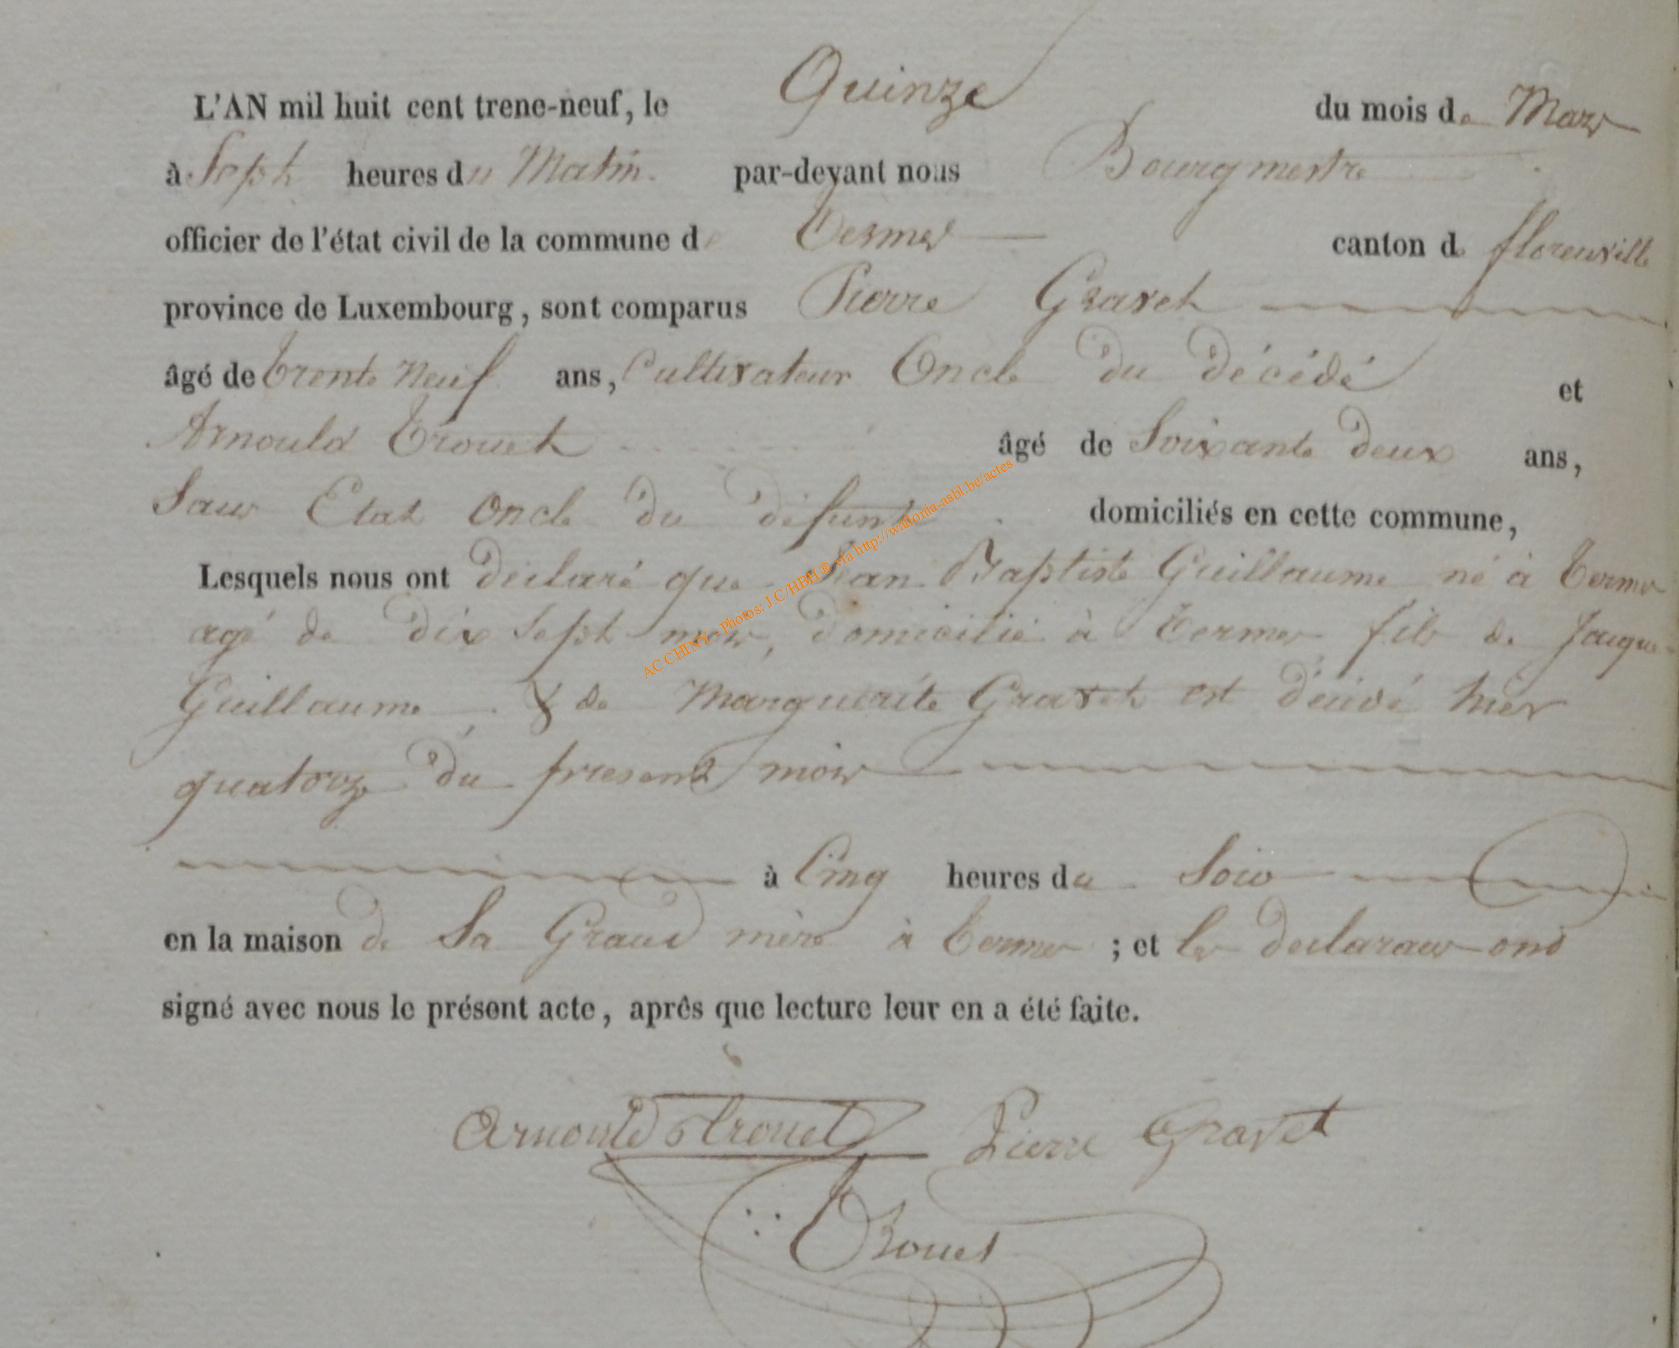 L'AN mil huit cent trene-neuf, le Quinze du mois de Mars
à Sept heures du Matin par-devant nous Bourgmestre
officier de l'état civil de la commune de Termes canton de florenville
province de Luxembourg, sont comparus Pierre Gravet
âgé de trente Neuf ans, Cultivateur Oncle du décédé et
Arnould Trouet âgé de Soixante deux ans,
Sans Etat Oncle du défunt domiciliés en cette commune,
Lesquels nous ont declaré que Jean Baptiste Guillaume né à Termes
agé de dix Sept mois, domicilié à Termes fils de Jacque
Guillaume & de Marguerite Gravet est décédé hier
quatorze du present mois
à Cinq heures du Soir
en la maison de Sa Grand mère à Termes ; et les declarans ont
signé avec nous le présent acte, après que lecture leur en a été faite.
Arnould Trouet Pierre Gravet
Trouet
AC CHINY - Photos: J.C/HBH & via http://wallonia-asbl.be/actes